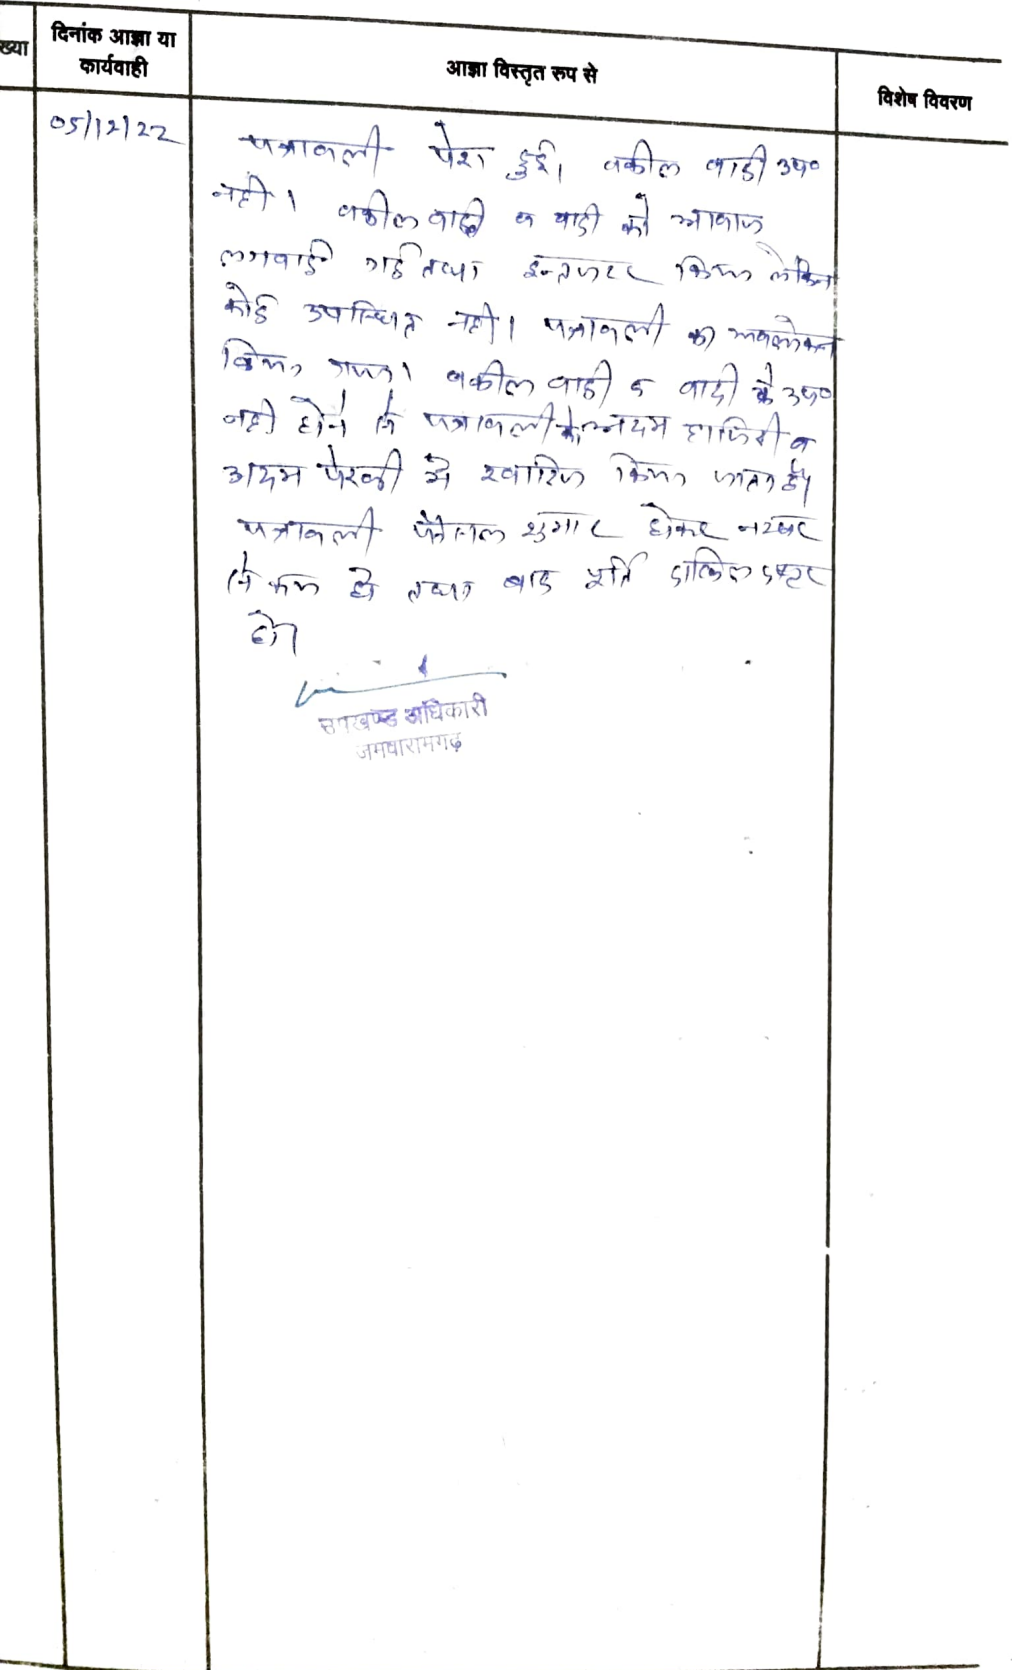 ख्या
दिनांक आज्ञा या
कार्यवाही
आज्ञा विस्तृत रुप से
विशेष विवरण
05/12/22
पत्रावली पेश हुई। वकील वादी उप०
नही। वकील वादी व वादी को आवाज
लगवाई गई तथा इन्तजार किया लेकिन
कोई उपस्थित नही। पत्रावली का अवलोकन
किया गया। वकील वादी व वादी के उप०
नही होने से पत्रावली को अदम हाजिरी व
अदम पैरवी मे खारिज किया जाता है।
पत्रावली फैसल शुमार होकर नम्बर
से कम हो तथा बाद पूर्ति दाखिल दफ्तर
हो।
उपखण्ड अधिकारी
जमवारामगढ़